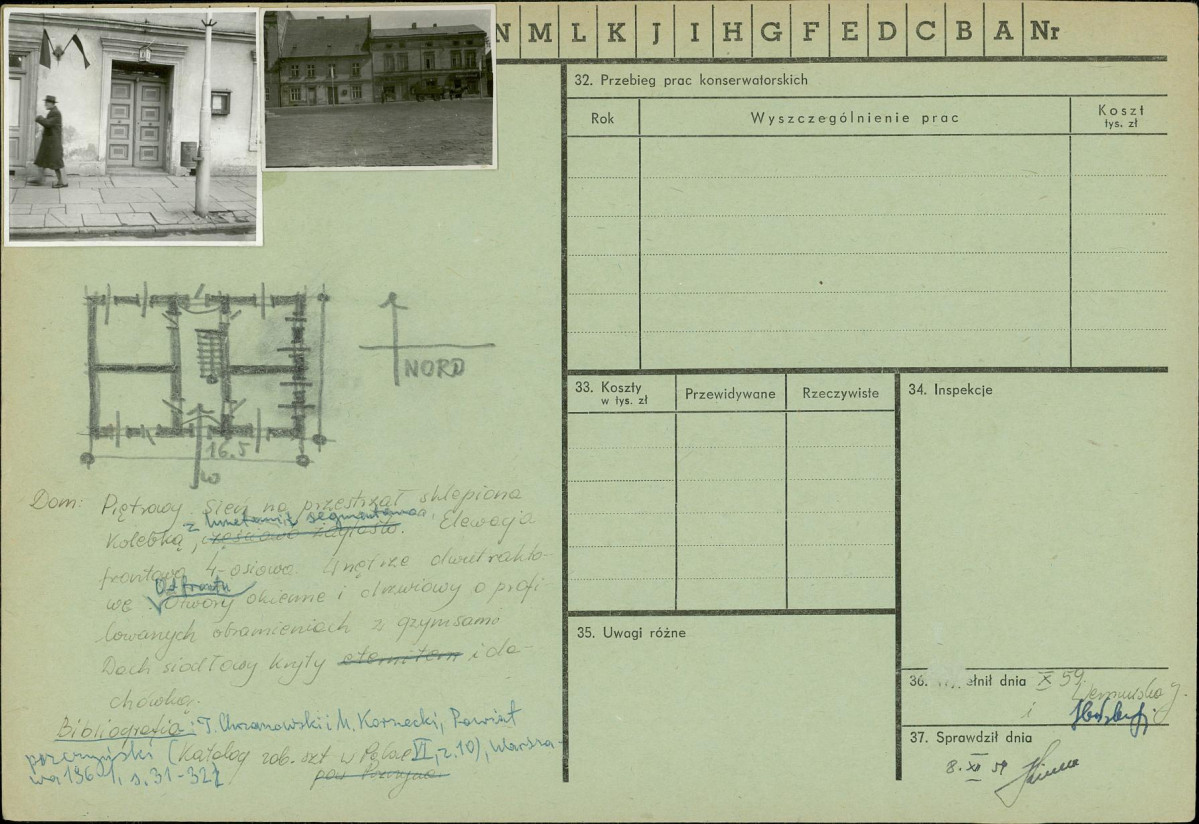 N M L K J I H G F E D C B A Nr
32. Przebieg prac konserwatorskich
Rok
Wyszczególnienie prac
Koszt
tys. zł
33. Koszty
w tys. zł
Przewidywane
Rzeczywiste
34. Inspekcje
35. Uwagi różne
36.ełnił dnia X 59
i
37. Sprawdził dnia
8. XII 59
NORD
16.5
W
Dom: Piętrowy. Sień na przestrzał sklepiona
z lunetami segmentowa
Kolebką, częściowo żaglasto. Elewacja
frontowa 4-osiowa. Wnętrze dwutrakto-
Od frontu
we. Otwory okienne i drzwiowy o profi-
lowanych obramieniach z gzymsami
Dach siodłowy kryty eternitem i da-
chówką.
Bibliografia: T. Chrzanowski i M. Kornecki, Powiat
(Katalog zab. szt w Polsce VI, z. 10), Warsza-
wa 196 s. 31-32
pow